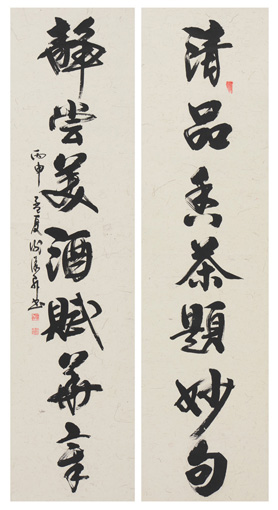 清品香茶題妙句
靜嘗美酒賦華章
丙申孟夏